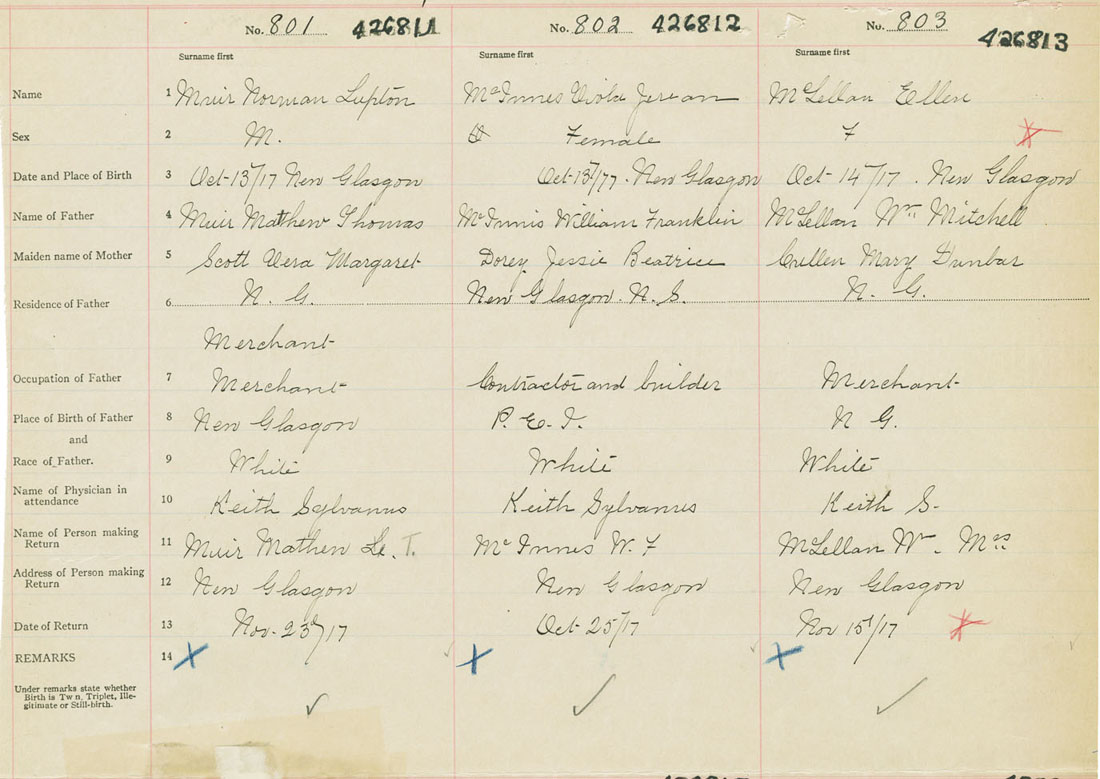 No. 801 426811 No. 802 426812 No. 803 426813
Surname first Surname first Surname first
Name 1 Muir Norman Lupton McInnes Viola Jerean McLellan Ellen
Sex 2 M. Female F
Date and Place of Birth 3 Oct-13/17 New Glasgow Oct-13/17. New Glasgow Oct-14/17. New Glasgow
Name of Father 4 Muir Mathew Thomas McInnis William Franklin McLellan Wm Mitchell
Maiden name of Mother 5 Scott Vera Margaret Dorey Jessie Beatrice Cullen Mary Dunbar
Residence of Father 6 N. G. New Glasgow. N. S. N. G.
Merchant
Occupation of Father 7 Merchant Contractor and builder Merchant
Place of Birth of Father 8 New Glasgow P. E. I. N G.
and
Race of Father. 9 White White White
Name of Physician in
attendance 10 Keith Sylvanus Keith Sylvanus Keith S.
Name of Person making
Return 11 Muir Mathew T. McInnes W. F McLellan Wm. Mrs
Address of Person making
Return 12 New Glasgow New Glasgow New Glasgow
Date of Return 13 Nov. 23d/17 Oct 25/17 Nov 15t/17
REMARKS 14
Under remarks state whether
Birth is Tw n, Triplet, Ille-
gitimate or Still-birth.